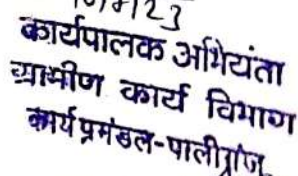 कार्यपालक अभियंता
ग्रामीण कार्य विभाग
कार्य प्रमंडल-पालीगंज